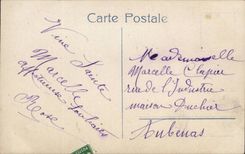 Carte Postale
Vive Sainte
Marcelle
affectueuse
Rose
Mademoiselle
Marcelle
rue de l'Industrie
maison
Aubenas